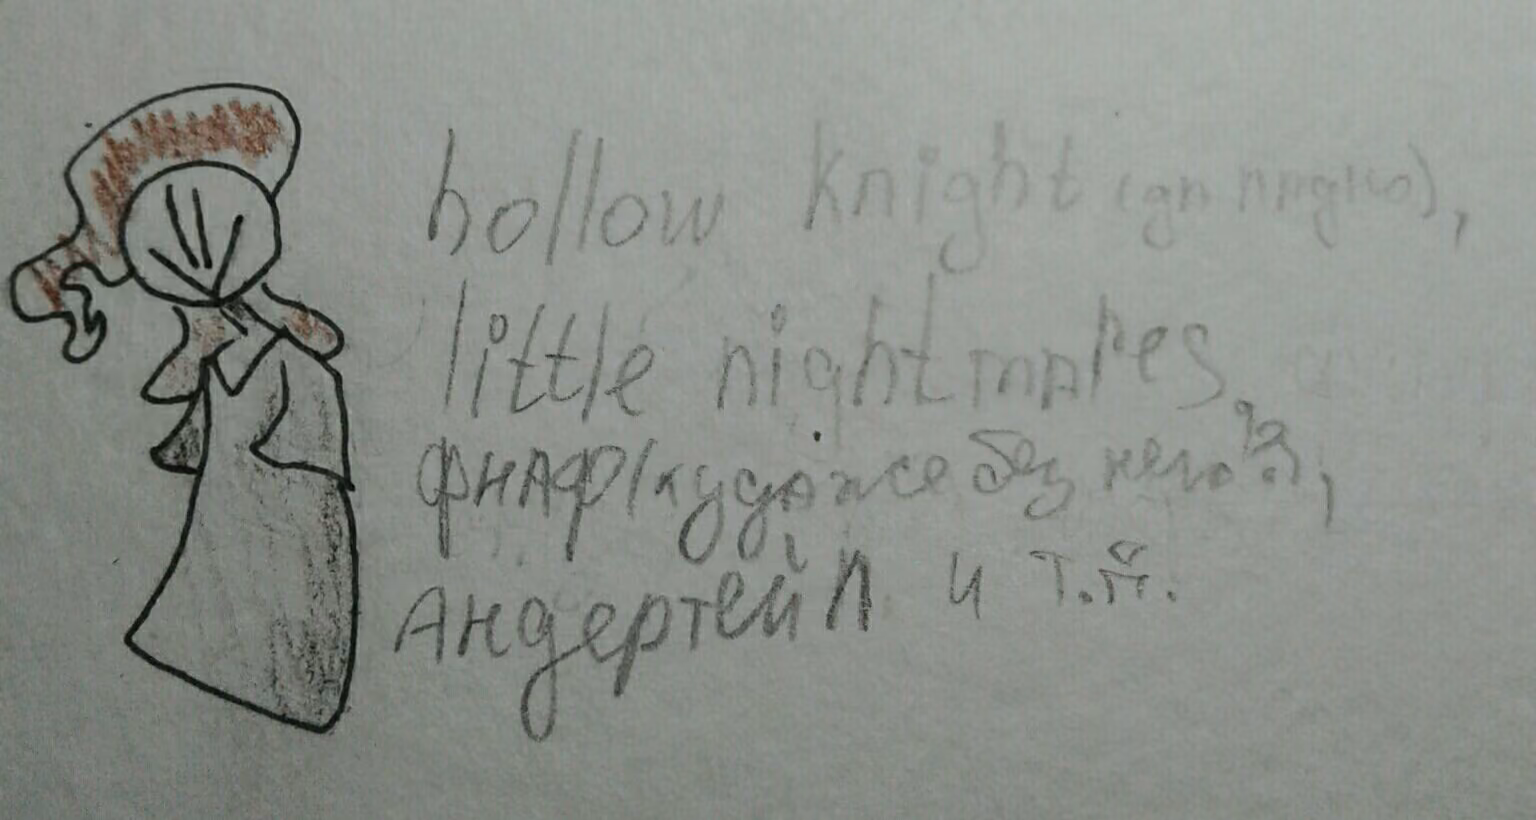 hollow knight (ди ладно),
little nightmares,
ФНАФ (куда же без него?),
Андертейл и т.п.